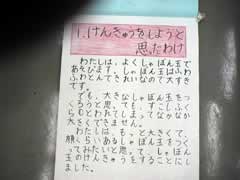 1.けんきゅうをしようと
思ったわけ
わたしは、よくしゃぼん玉で
あそびます。しゃぼん玉はふき
ふわとんできれいなので大すき
です。
でも、大きなしゃぼん玉をつ
くろうと思っても、すこしふくか
らむとわれてしまって、なかなか
大きくできません。
わたしは、もっと大きくて、
顔くらいあるしゃぼん玉をつく
ってみたいと思って、しゃぼん
玉のけんきゅうをすることにし
ました。